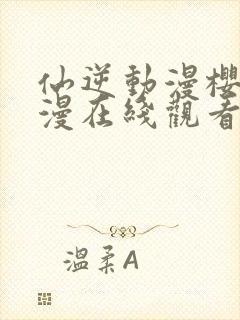 仙逆動漫櫻
漫在綫觀看
溫柔A